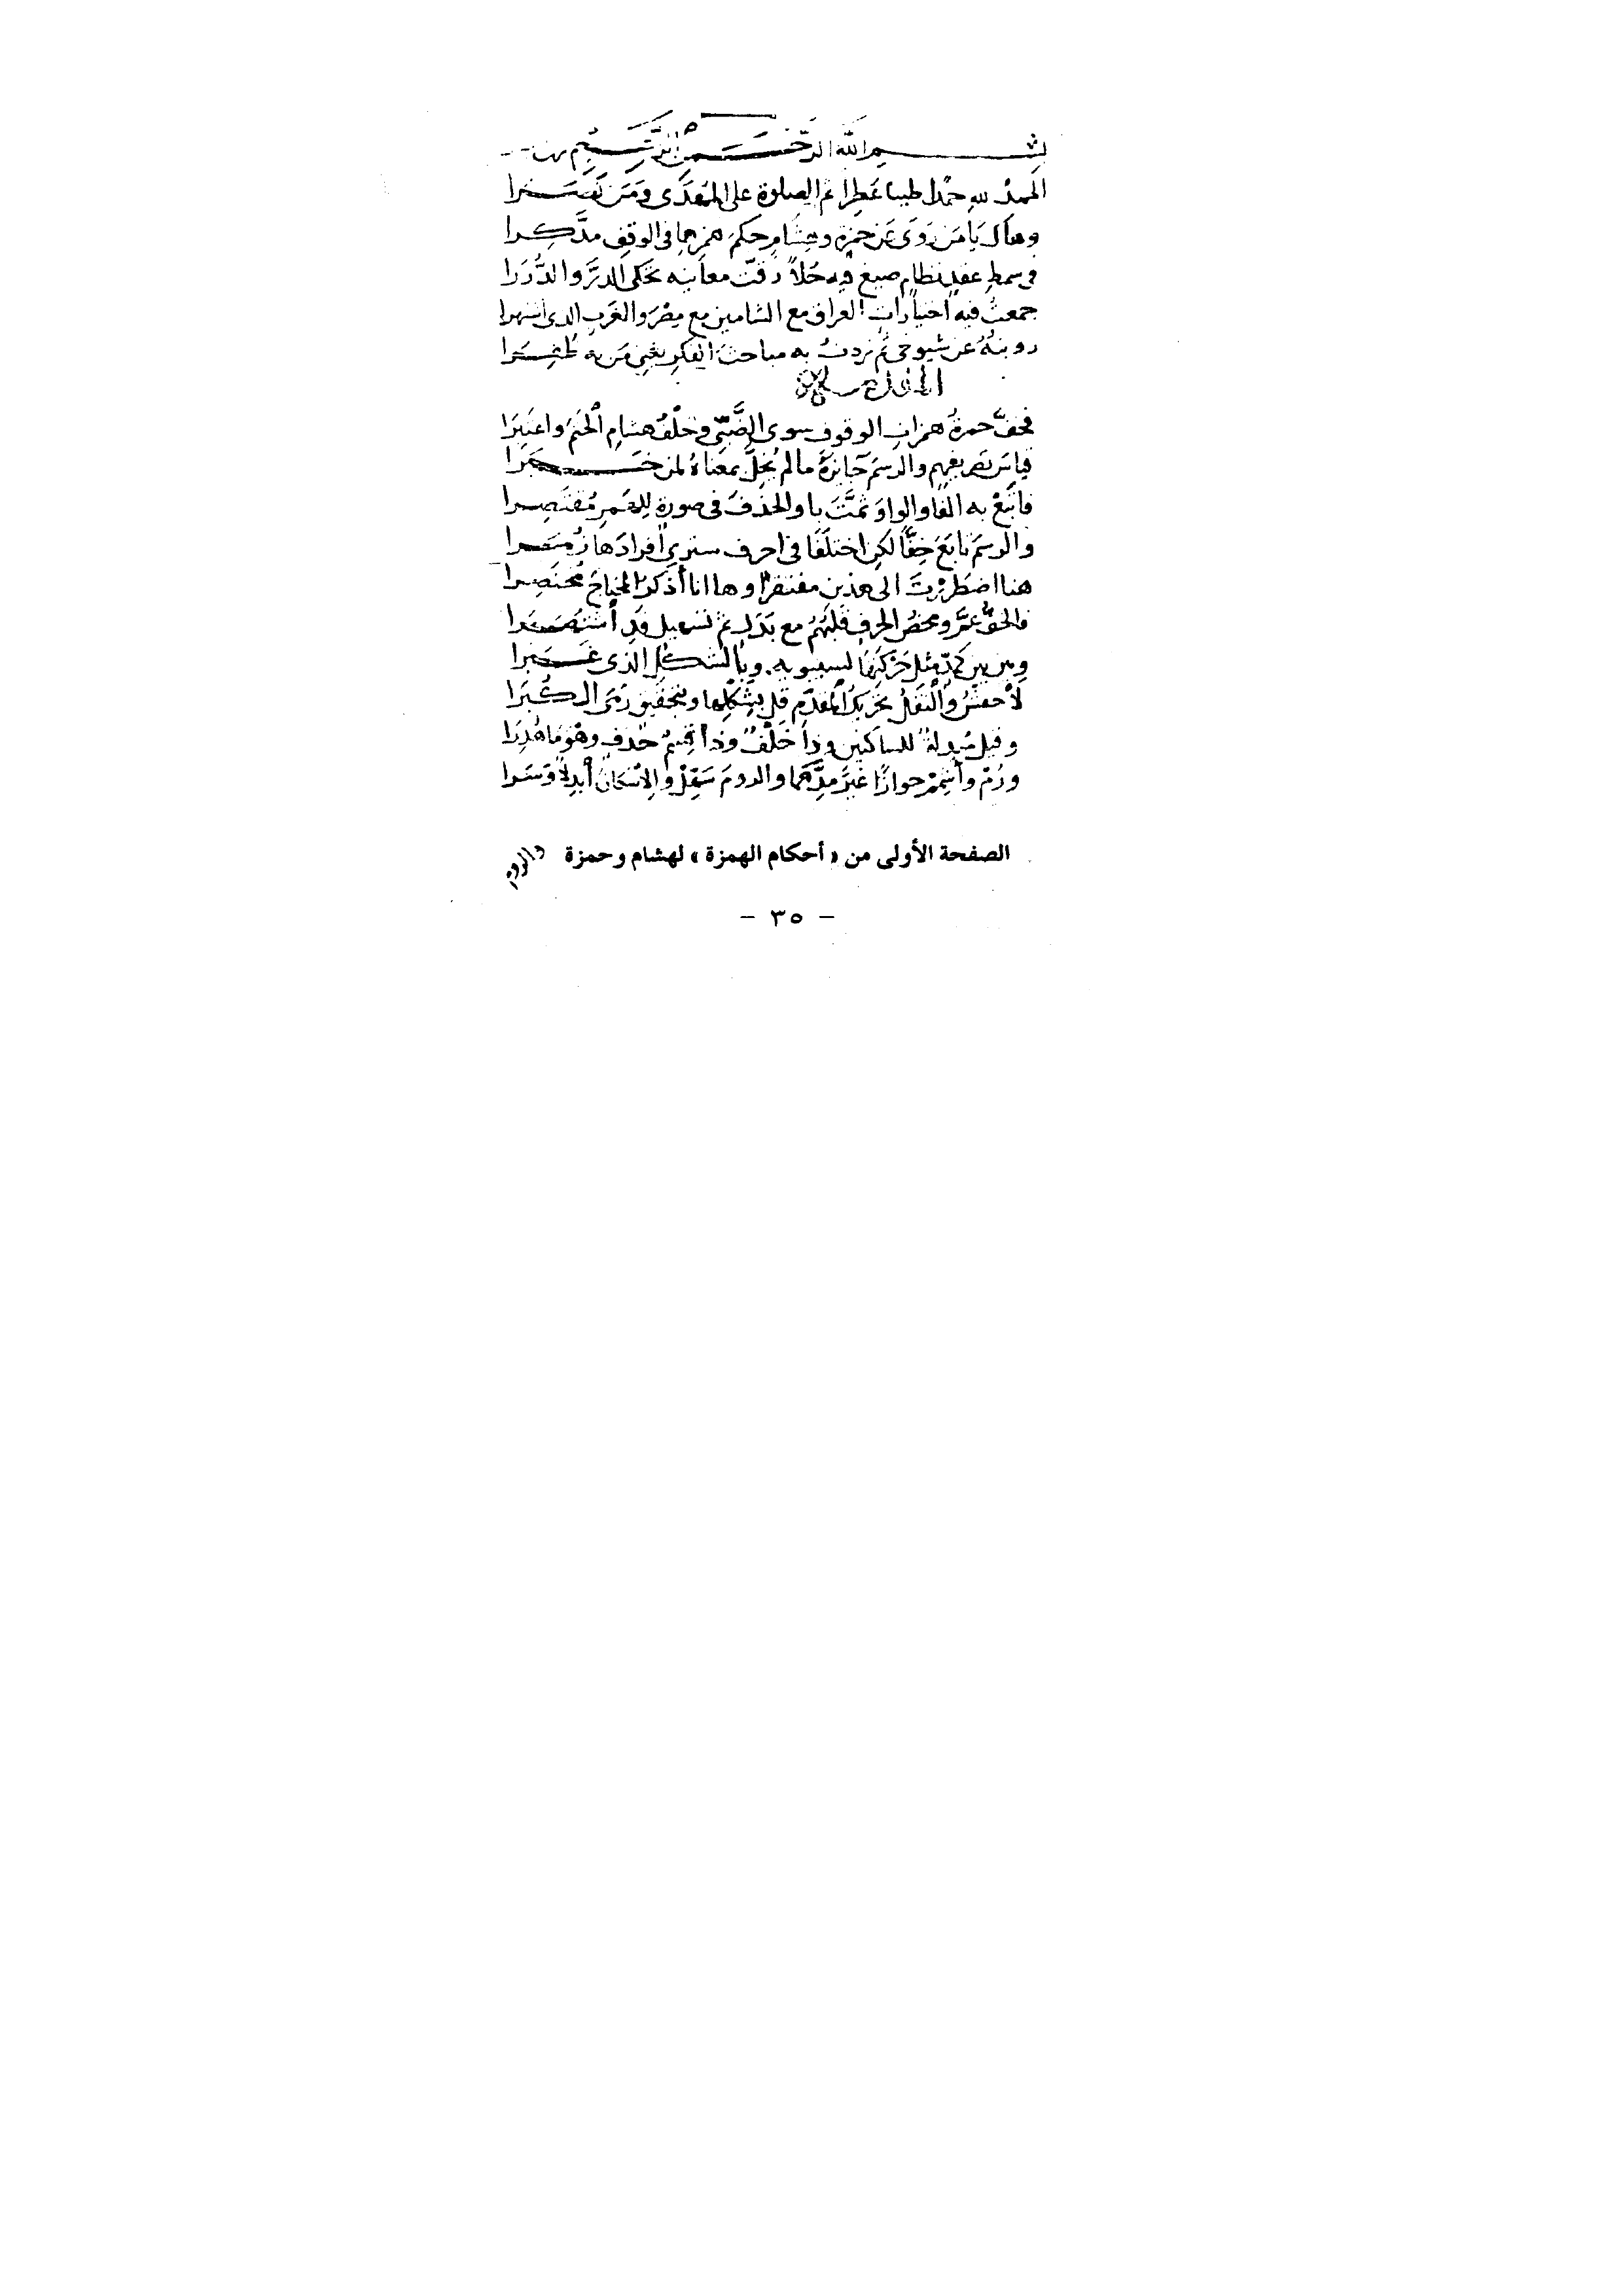 بسم الله الرحمن الرحيم
الحمدُ للهِ حمْدا طيبا عَطِرا ثم الصلوة على المهدَى ومَن نَصَرا
وهاكَ يَا مَن رَوَى عَن حمزةٍ وهِشَامٍ حكمَ همزِهما في الوقفِ مدَّكِرا
في سمطِ عقدِ نظامٍ صيغ فيه حُلاً دقّت معانيه تحكى الدرَّ والدُّرَرا
جمعتُ فيه اختيارات العراق مع الشامين مع مِصْرَ والغَربِ الذي اشتهرا
رويتُهُ عن شيوخي ثم زدتُ به مباحثَ الفكرِ يغنى مَن به ظَفِرا
فخفَّ حمزةُ همزاتِ الوقوفِ سوى الضَّبِّي وخلْفُ هشامِ الختمَ واعتبرَا
قياس تصريفهم والرسمَ جائزةً ما لم يُخِلَّ بمعناهُ لمن خَبَرا
فاتبَعْ به الفا والواوَ ثمَّتَ يا والحذفَ في صورةٍ للهمزِ مُقتَصِرا
والرسمَ تابَعَ خِفًّا لكن اختلَفَا في احرف سترى أفرادَها زُمَرا
هنا اضطررتَ الى هذين مفتقرًا وها انا أذكر المحتاجَ مختصِرا
فالخفُّ عمَّ ومحضُ الحرفِ قلبُهُمُ مع بَدَلٍ ثم تسهيل
وبين بين كمدّ مثل حَرْكَتِهَا لسيبويه. وبالشكلِ الذي غبرا
لأَخفشٍ والنقلُ تحريكُ المقدَّمِ قل بشَكْلِها وبتحقيقٍ رَمَى الكُبَرا
وقيل مُبدلةٌ للساكنين وذا خُلْفٌ وذا قسمُ حذفٍ وهْوَ ما هُدِرَا
ورُمْ وأشمِمْ جوازًا غيرَ مدِّهما والروم سَهِّلْ والإسْكانُ أبدِلاً
الصفحة الأولى من « أحكام الهمزة » لهشام وحمزة
- ٣٥ -